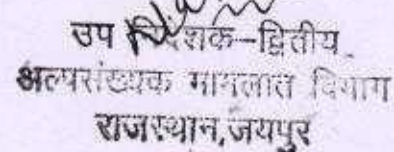 उप निदेशक-द्वितीय
अल्पसंख्यक मामलात विभाग
राजस्थान,जयपुर